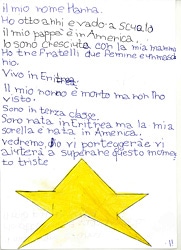 il mio nome Hanna.
Ho otto anni e vado a scuola
il mio pappà è in America.
Io sono cresciuta con la mia mamma
Ho tre Fratelli due Femine e un maschio
mio.
Vivo in Eritrea.
Il mio nonno è morto ma non l'ho
visto.
Sono in terza classe.
Sono nata in Eritrea ma la mia
sorella è nata in America.
vedremo, Dio vi porteggerà e vi
aiuterà a superare questo momen
to triste